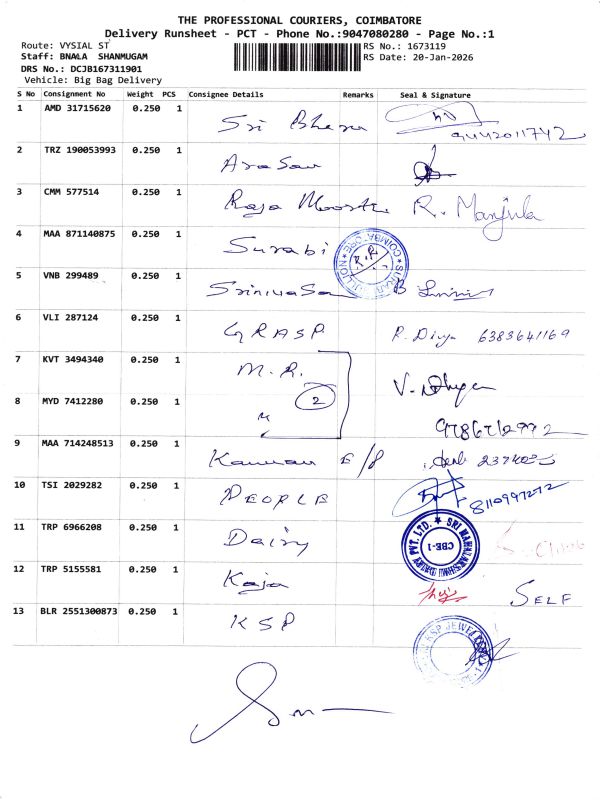 THE PROFESSIONAL COURIERS, COIMBATORE
Delivery Runsheet - PCT - Phone No.:9047080280 - Page No.:1
Route: VYSIAL ST
RS No.: 1673119
Staff: BNALA SHANMUGAM
RS Date: 20-Jan-2026
DRS No.: DCJB167311901
Vehicle: Big Bag Delivery
S No Consignment No Weight PCS Consignee Details Remarks Seal & Signature
1 AMD 31715620 0.250 1 Sri 9442011742
2 TRZ 190053993 0.250 1
3 CMM 577514 0.250 1 Raja R. Manjula
4 MAA 871140875 0.250 1 Surabi R.R
5 VNB 299489 0.250 1 B
6 VLI 287124 0.250 1 GRASP R. Divya 6383641169
7 KVT 3494340 0.250 1 M.R.
8 MYD 7412280 0.250 1 2
9 MAA 714248513 0.250 1 Kannan E/8
10 TSI 2029282 0.250 1 PEOPLE 8110997272
11 TRP 6966208 0.250 1 Dairy
PVT. LTD. ★ SRI MAHALAKSHMI DAIRY
CBE-1
12 TRP 5155581 0.250 1 Kaja SELF
13 BLR 2551300873 0.250 1 KSP
KSP JEWEL